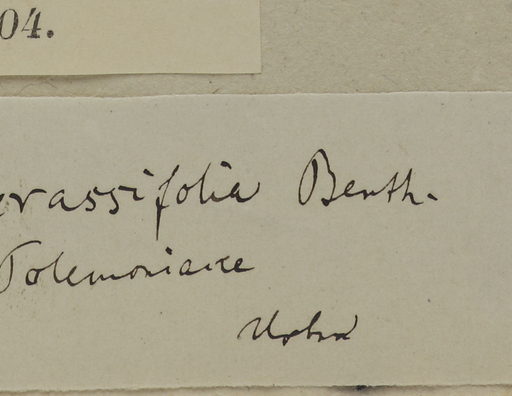 04.
crassifolia Benth.
Polemoniacee
Urban